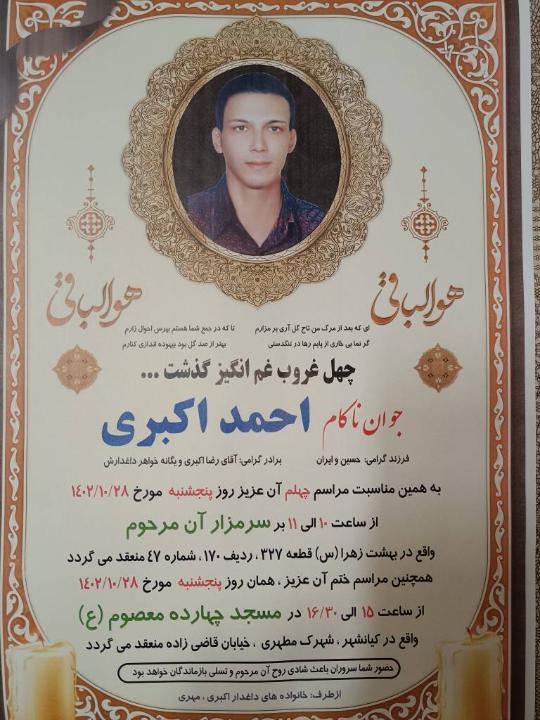 هوالباقی
هوالباقی
ای که بعد از مرگ من تاج گل آری بر مزارم
تا که در جمع شما هستم بپرس احوال زارم
گر نمایی خاری از پایم رها در تنگدستی
بهتر از صد گل بود بیهوده اندازی کنارم
چهل غروب غم انگیز گذشت ...
جوان ناکام احمد اکبری
فرزند گرامی: حسین و ایران
برادر گرامی: آقای رضا اکبری و یگانه خواهر داغدارش
به همین مناسبت مراسم چهلم آن عزیز روز پنجشنبه مورخ ۱۴۰۲/۱۰/۲۸
از ساعت ۱۰ الی ۱۱ بر سرمزار آن مرحوم
واقع در بهشت زهرا (س) قطعه ۳۲۷، ردیف ۱۷۰، شماره ۴۷ منعقد می گردد
همچنین مراسم ختم آن عزیز ، همان روز پنجشنبه مورخ ۱۴۰۲/۱۰/۲۸
از ساعت ۱۵ الی ۱۶/۳۰ در مسجد چهارده معصوم (ع)
واقع در کیانشهر ، شهرک مطهری ، خیابان قاضی زاده منعقد می گردد
حضور شما سروران باعث شادی روح آن مرحوم و تسلی بازماندگان خواهد بود
ازطرف: خانواده های داغدار اکبری ، مهری